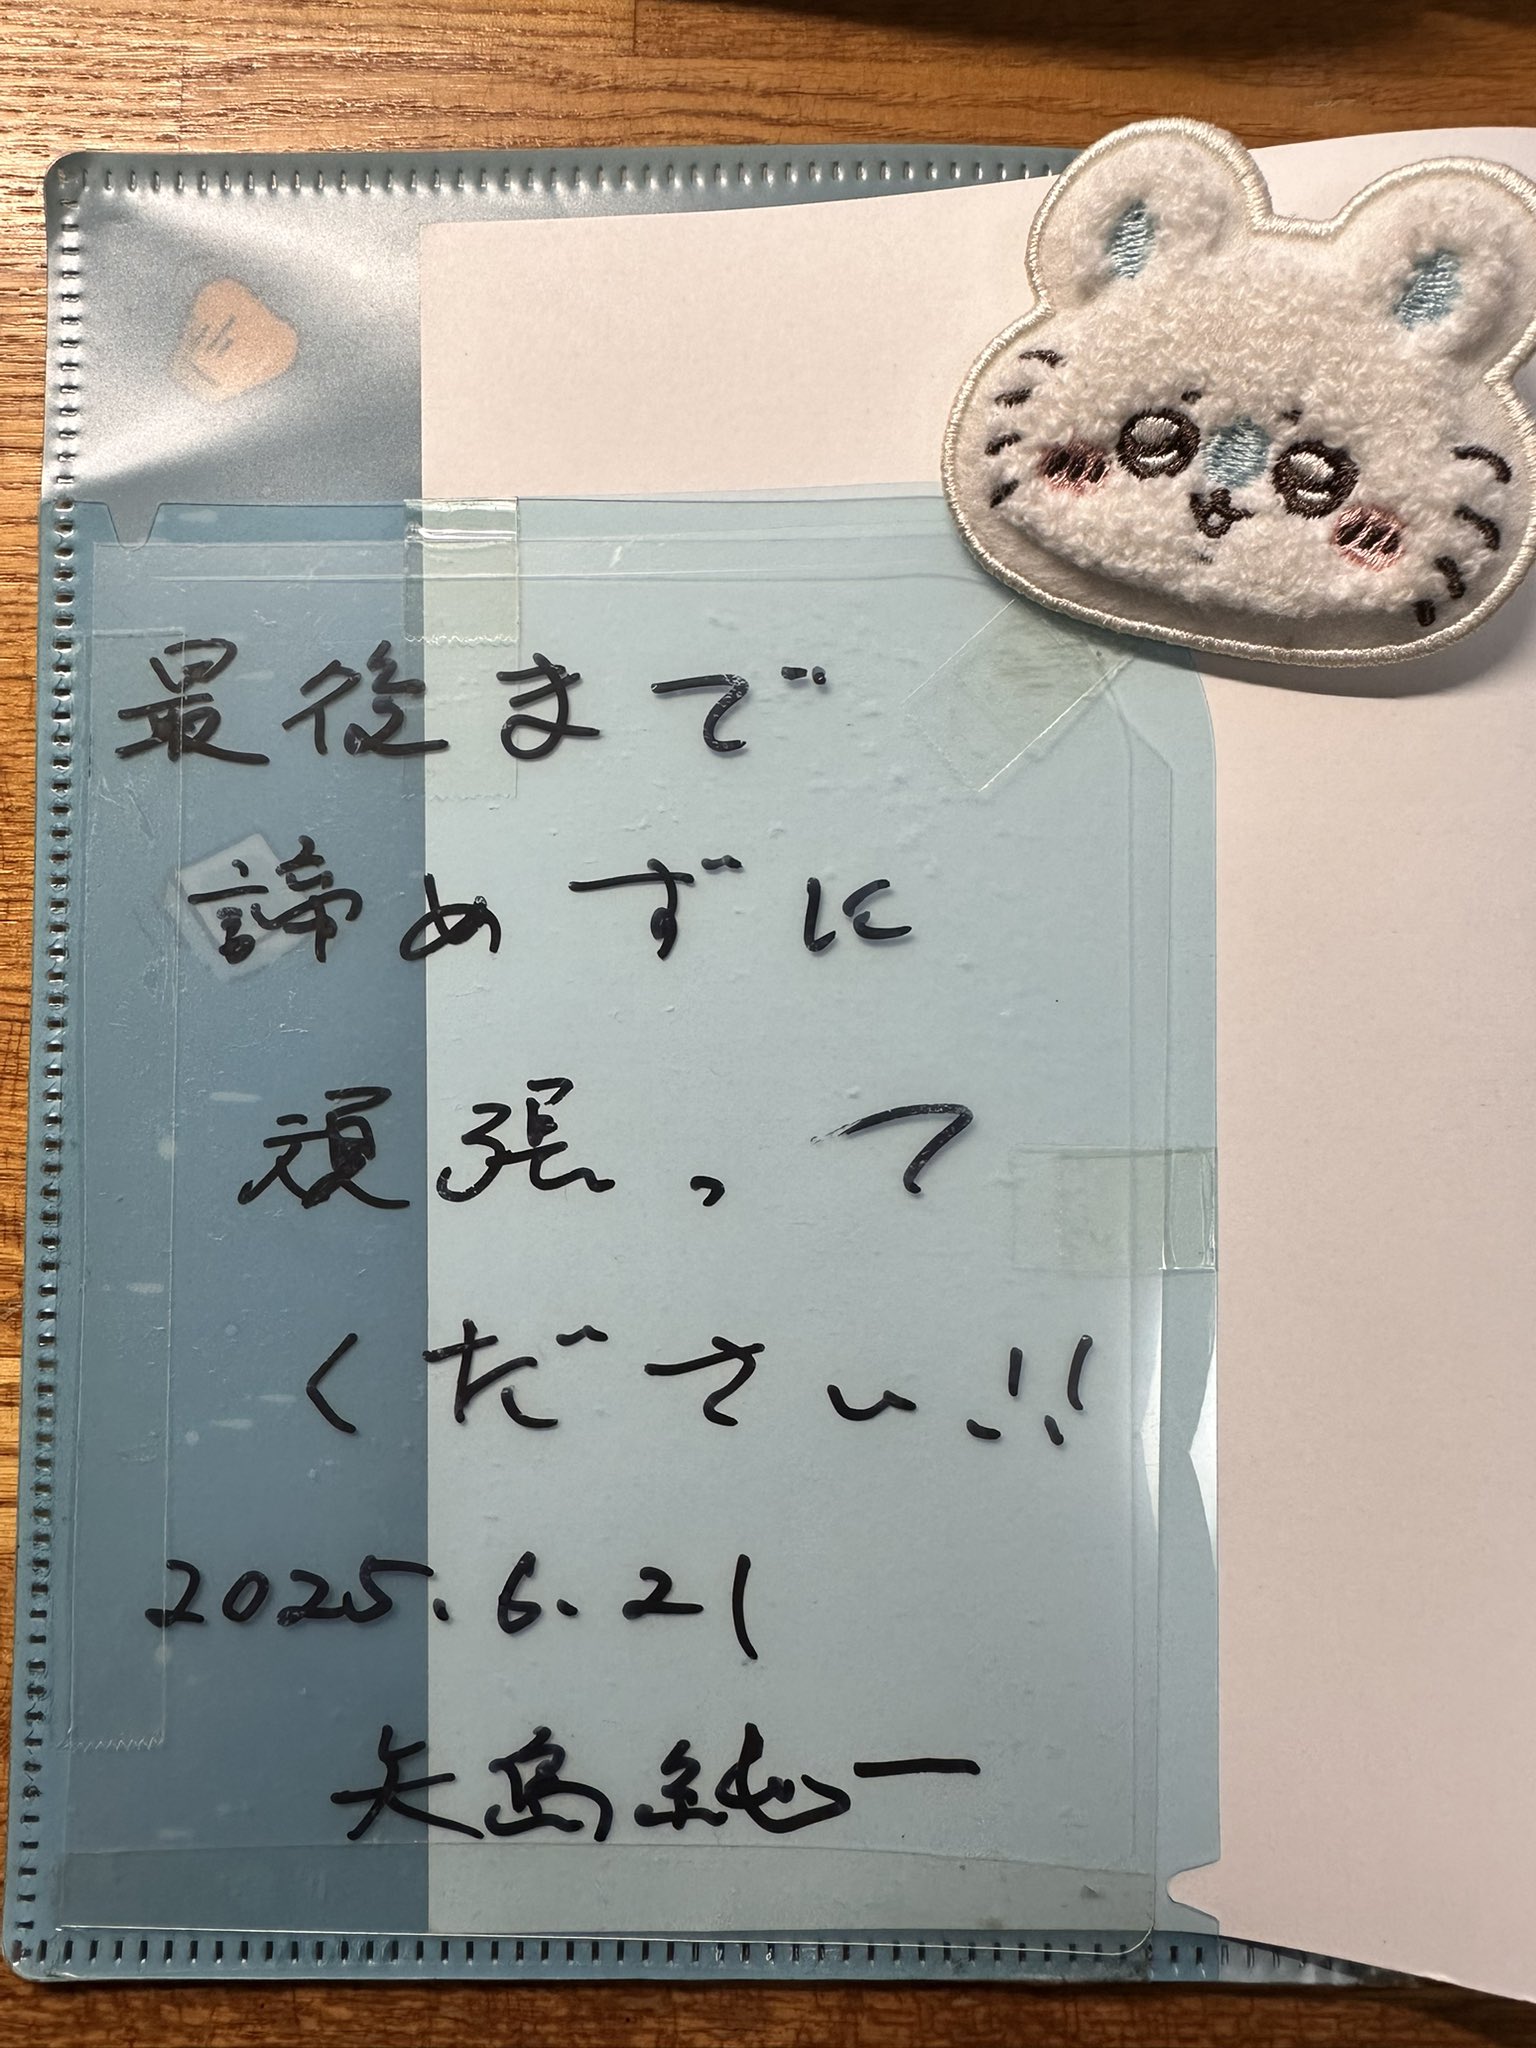 最後まで
諦めずに
頑張って
ください!!
2025.6.21
矢島純一